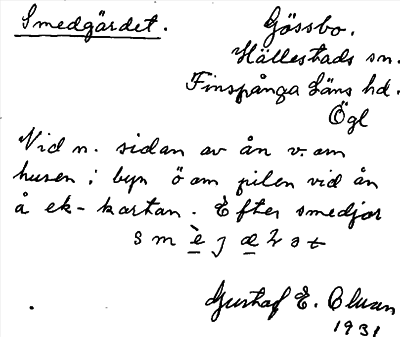 Smedgärdet.
Gössbo.
Hällestads sn.
Finspånga läns hd.
Ögl
Vid n. sidan av ån v. om
husen i byn ö om pilen vid ån
å ek-kartan. Efter smedjor
Gustaf E.
1931